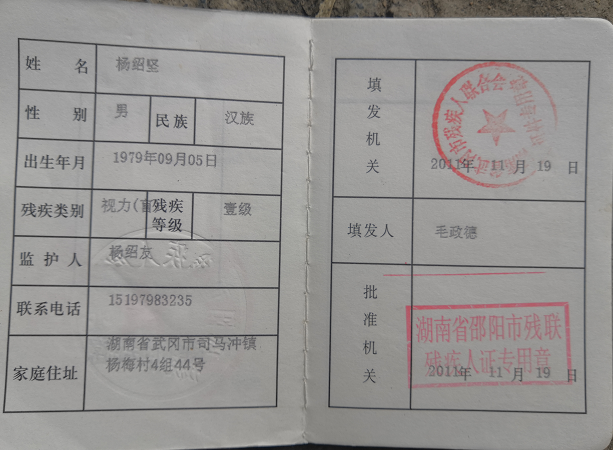 姓 名 杨绍坚
性 别 男 民族 汉族
出生年月 1979年09月05日
残疾类别 视力(盲) 残疾等级 壹级
监护人 杨绍友
联系电话 15197983235
家庭住址 湖南省武冈市司马冲镇
杨梅村4组44号
填发机关
2011年 11月 19日
填发人 毛政德
批准机关
湖南省邵阳市残联
残疾人证专用章
2011年 11月 19日